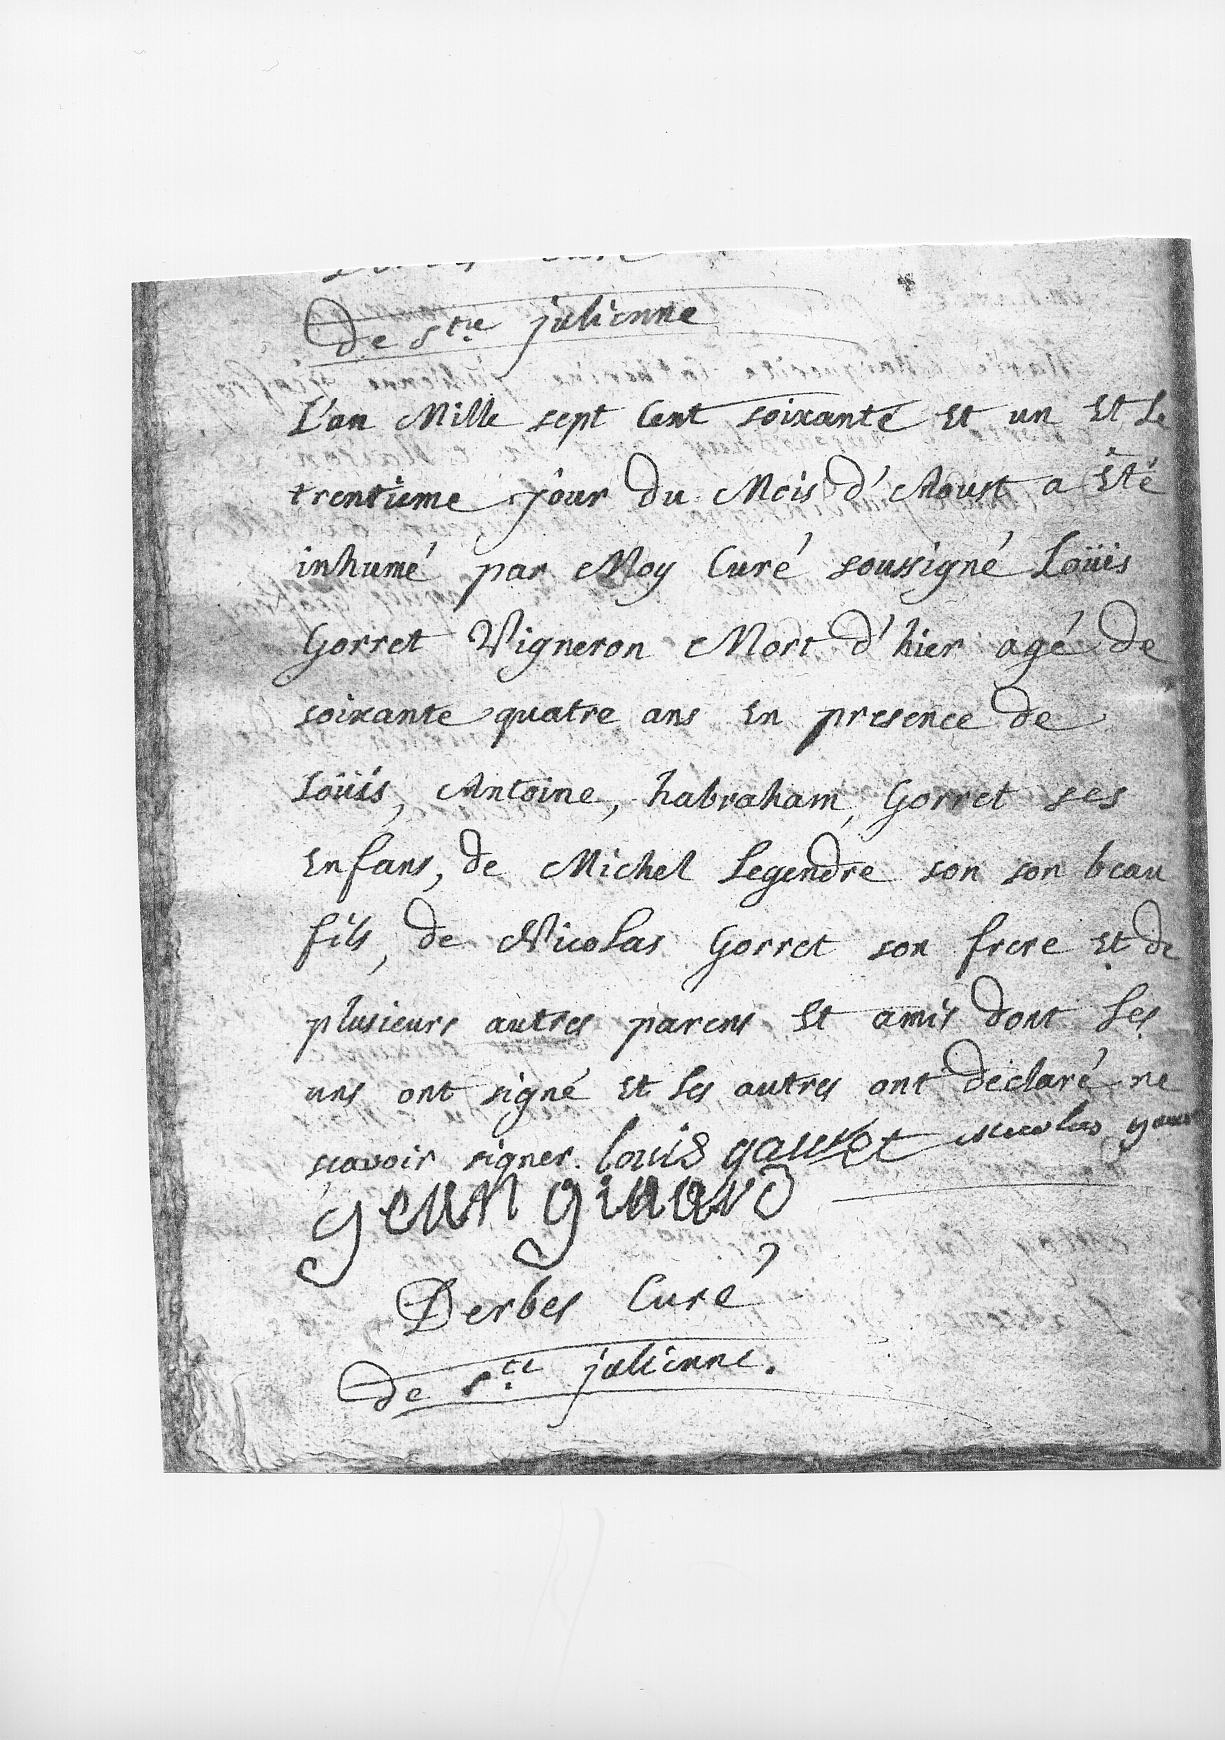 de ste julienne
L'an Mille sept Cent soixante et un et le
trentieme jour du Mois d'Aoust a êté
inhumé par Moy Curé soussigné Loüis
Gorret Vigneron Mort d'hier agé de
soixante quatre ans en presence de
Loüis, Antoine, habraham, Gorret ses
enfans, de Michel Legendre son son beau
fils, de Nicolas Gorret son frere et de
plusieurs autres parens et amis dont les
uns ont signé et les autres ont declaré ne
scavoir signer. louis gauret nicolas
Derbes Curé
de ste julienne.